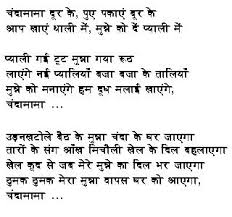 चंदामामा दूर के, पुए पकाएं बूर के
आप खाएं थाली में, मुन्ने को दें प्याली में
प्याली गई टूट मुन्ना गया रूठ
लाएंगे नई प्यालियाँ बजा बजा के तालियाँ
मुन्ने को मनाएंगे हम दूध मलाई खाएंगे,
चंदामामा ...
उड़नखटोले बैठ के मुन्ना चंदा के घर जाएगा
तारों के संग आँख मिचौली खेल के दिल बहलाएगा
खेल कूद से जब मेरे मुन्ने का दिल भर जाएगा
ठुमक ठुमक मेरा मुन्ना वापस घर को आएगा,
चंदामामा ...